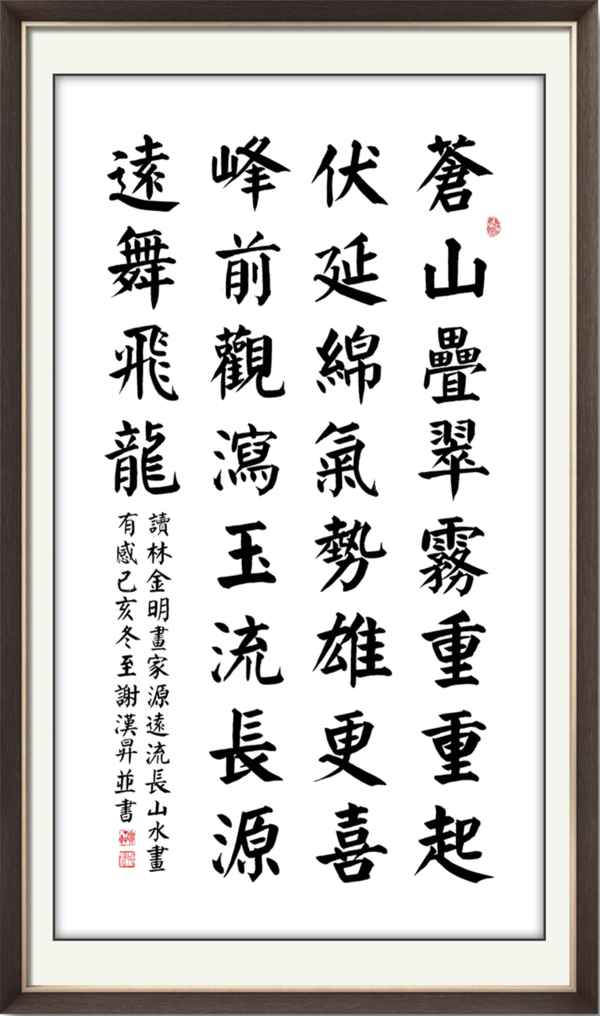 蒼山疊翠霧重重起
伏延綿氣勢雄更喜
峰前觀瀉玉流長源
遠舞飛龍
讀林金明畫家源遠流長山水畫
有感己亥冬至謝漢昇並書